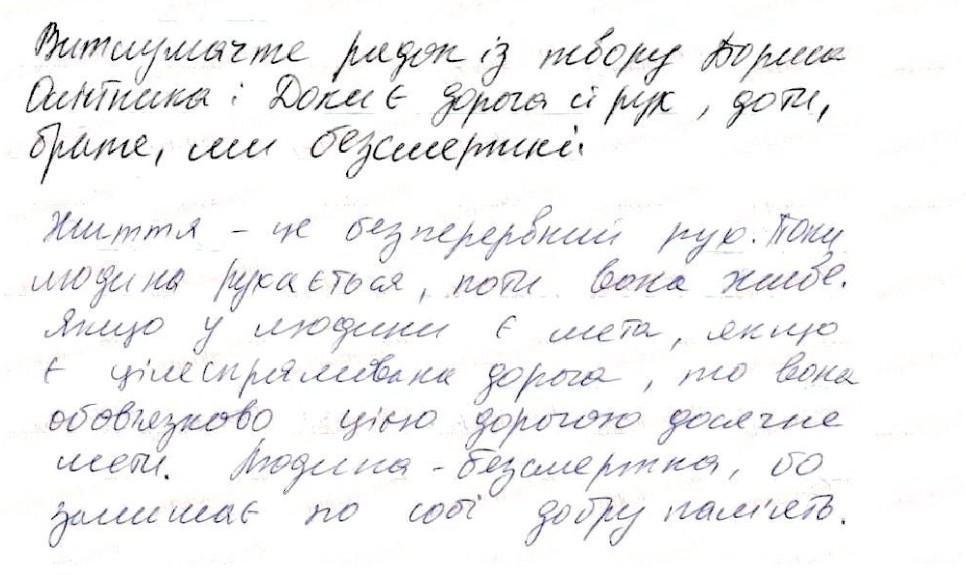 Витлумачте рядок із твору Бориса
Олійника: Доки є дорога й рух, доти,
брате, ми безсмертні.
Життя - це безперервний рух. Поки
людина рухається, поти вона живе.
Якщо у людини є мета, якщо
є цілеспрямована дорога, то вона
обов'язково цією дорогою досягне
мети. Людина - безсмертна, бо
залишає по собі добру пам'ять.